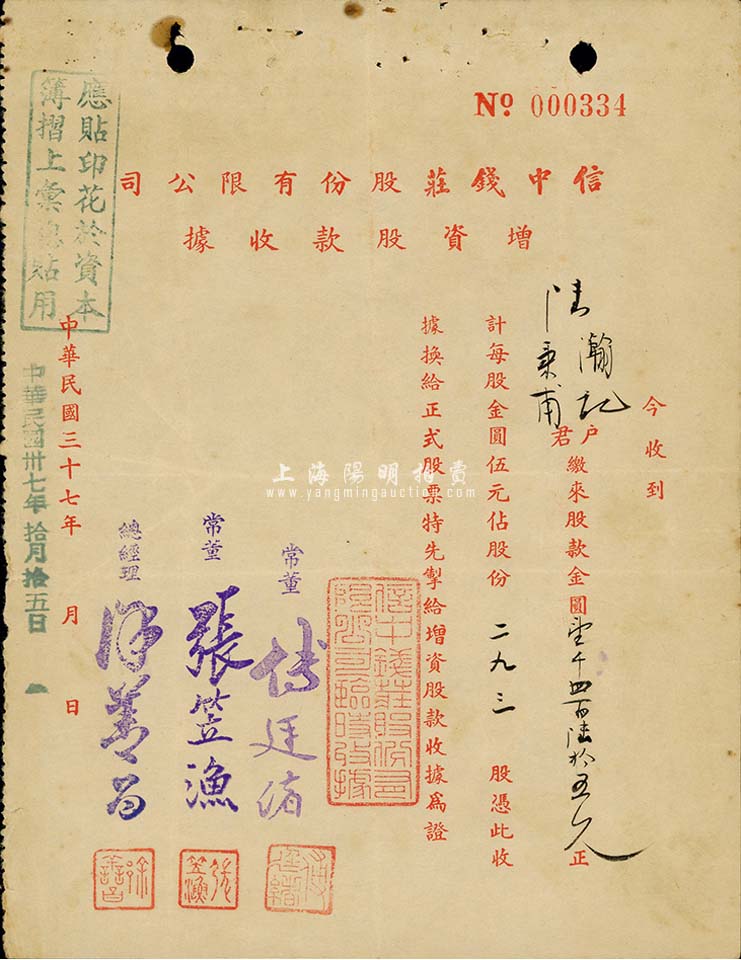 Nº 000334
信中錢莊股份有限公司
增資股款收據
今收到
陸瀚記
陸秉甫
户君繳來股款金圓壹千四百陸拾五元正
計每股金圓伍元佔股份二九三股憑此收
據換給正式股票特先掣給增資股款收據為證
信中錢莊股份有限公司臨時收據
常董
傅廷緒
常董
張笠漁
總經理
徐善昌
中華民國三十七年 月 日
中華民國卅七年拾月拾五日
應貼印花於資本
簿摺上彙總貼用
上海陽明拍賣
www.yangmingauction.com